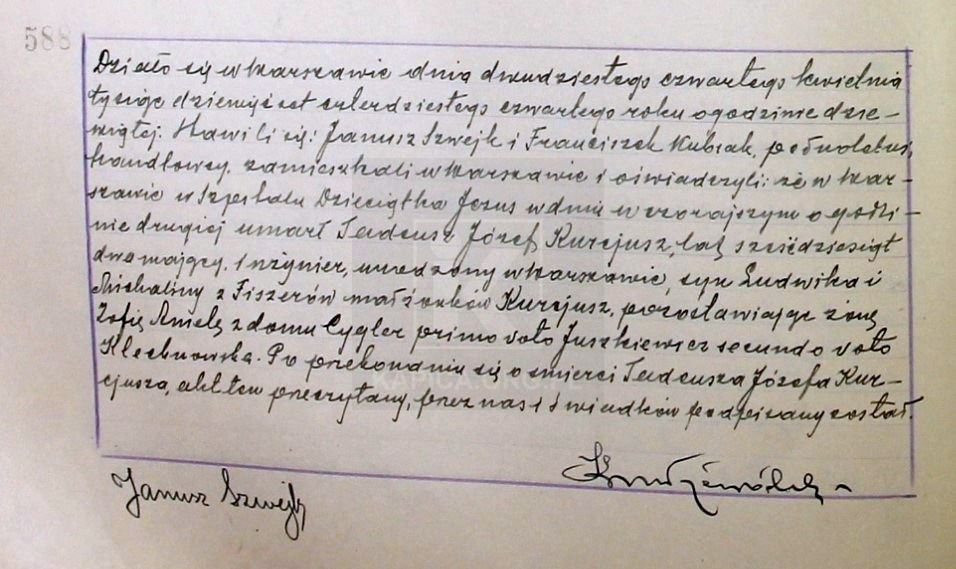 588
Działo się w Warszawie dnia dwudziestego czwartego kwietnia
tysiąc dziewięćset czterdziestego czwartego roku o godzinie dzie-
wiątej. Stawili się: Janusz Szwejk i Franciszek Kubiak, pełnoletni,
handlowcy, zamieszkali w Warszawie i oświadczyli: że w War-
szawie w Szpitalu Dzieciątka Jezus w dniu wczorajszym o godzi-
nie drugiej umarł Tadeusz Józef Kurcjusz, lat sześćdziesiąt
dwa mający, inżynier, urodzony w Warszawie, syn Ludwika i
Michaliny z Fiszerów małżonków Kurcjusz, pozostawiając żonę
Zofię Anielę z domu Cygler primo voto Juszkiewicz secundo voto
Klechnowska. Po przekonaniu się o śmierci Tadeusza Józefa Kur-
cjusza, akt ten przeczytany, przez nas i świadków podpisany został.
Janusz Szwejk
KAPICA.ORG.PL